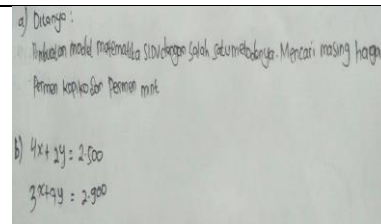 a) Ditanya :
model matematika SLDV dengan salah satu metodenya. Mencari masing harga
Permen kopiko dan Permen mint
b) 4x + 2y = 2.500
3x + 4y = 2.900